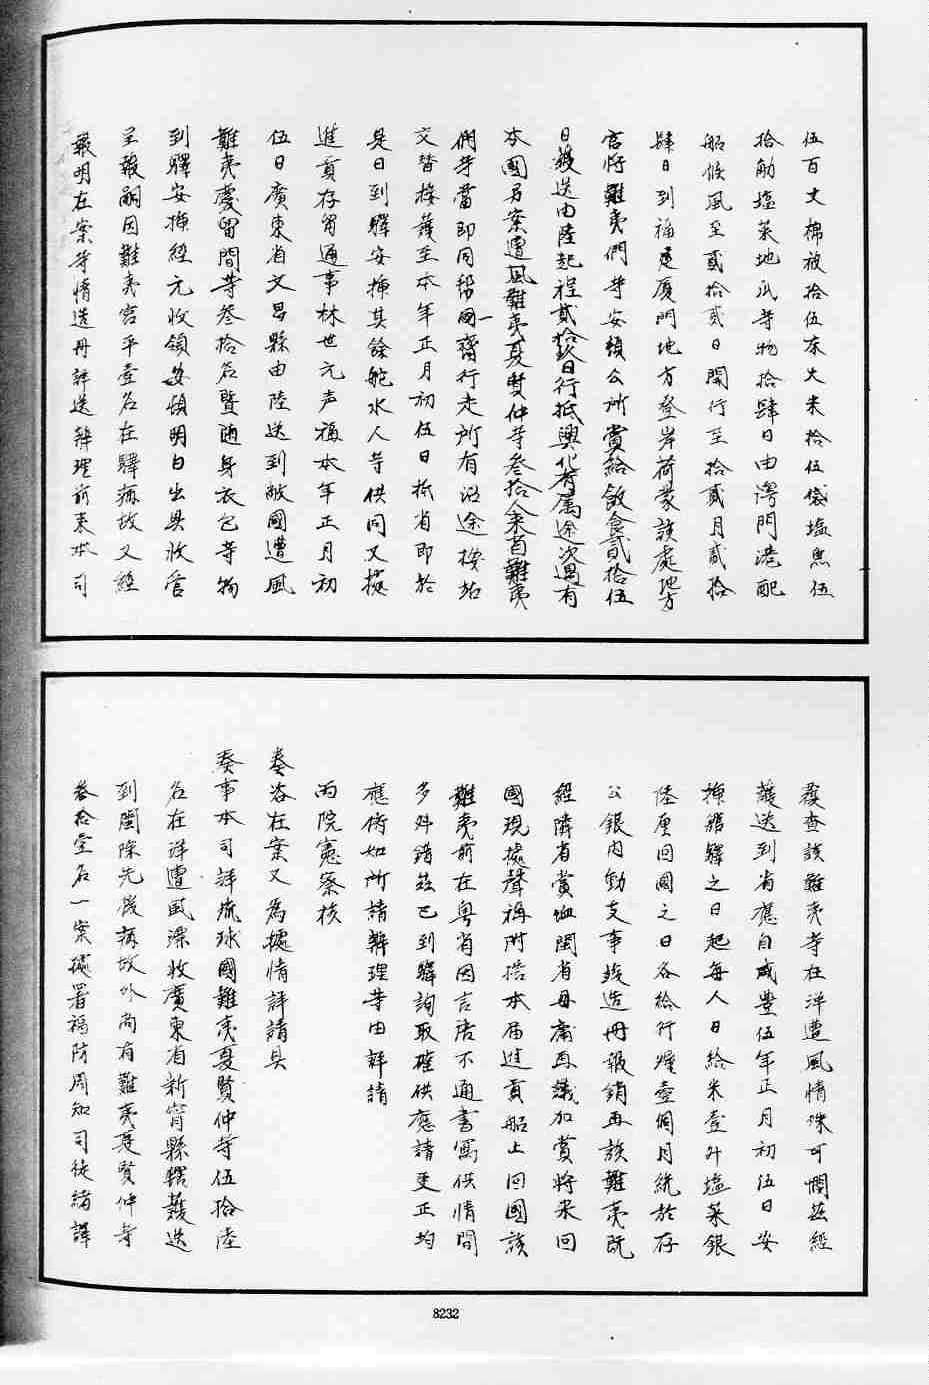 伍百丈棉被拾伍床大米拾伍袋塩魚伍
拾觔塩菜地瓜等物拾肆日由澚門港配
船候風至貳拾貳日開行至拾貳月貳拾
肆日到福建厦門地方登岸荷蒙該處地方
官將難夷們等安頓公所賞給飯食貳拾伍
日護送由陸起程貳拾玖日行抵興化府属途次遇有
本國另案遭風難夷夏賢仲等叁拾人來省難夷
們等當即同幫國一齊行走所有沿途按站
交替接護至本年正月初伍日抵省即於
是日到驛安揷其餘舵水人等供同又據
進貢存留通事林世元声稱本年正月初
伍日廣東省文昌縣由陸送到敝國遭風
難夷慶留間等叁拾名暨随身衣包等物
到驛安揷經元收領安頓明白出具收管
呈報嗣因難夷宮平壹名在驛病故又經
報明在案等情造冊詳送辦理前來本司
覆查該難夷等在洋遭風情殊可憫茲經
護送到省應自咸豊伍年正月初伍日安
揷舘驛之日起每人日給米壹升塩菜銀
陸厘回國之日各拾行糧壹個月統於存
公銀内動支事竣造冊報銷再該難夷既
經隣省賞恤閩省毋庸再議加賞將來回
國現據聲稱附搭本届進貢船上回國該
難夷前在粤省因言語不通書寫供情間
多舛錯茲已到驛詢取確供應請更正均
應俯如所請辦理等由詳請
両院憲察核
奏咨在案又為據情詳請具
奏事本司詳琉球國難夷夏賢仲等伍拾陸
名在洋遭風漂收廣東省新甯縣轄護送
到閩除先後病故外尚有難夷夏賢仲等
叁拾壹名一案據署福防周知司徒緒譯
8232